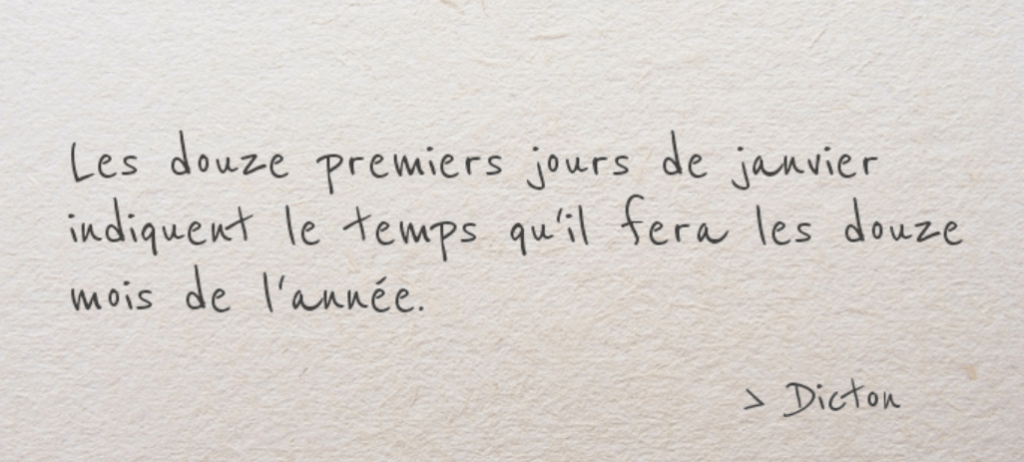 Les douze premiers jours de janvier
indiquent le temps qu'il fera les douze
mois de l'année.
> Dicton